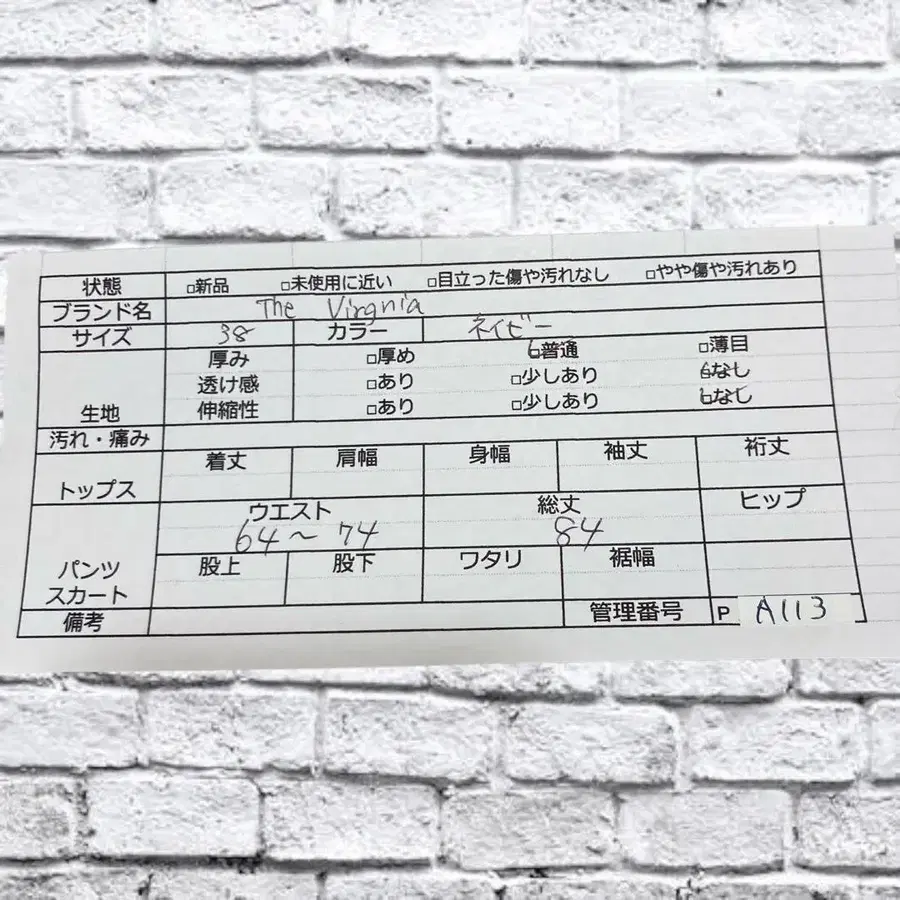 状態 □新品 □未使用に近い □目立った傷や汚れなし □やや傷や汚れあり
ブランド名 The Virgnia
サイズ 38 カラー ネイビー
厚み □厚め □普通 □薄目
透け感 □あり □少しあり □なし
生地 伸縮性 □あり □少しあり □なし
汚れ・痛み
着丈 肩幅 身幅 袖丈 裄丈
トップス
ウエスト 総丈 ヒップ
64〜74 84
パンツ 股上 股下 ワタリ 裾幅
スカート
備考 管理番号 P A113